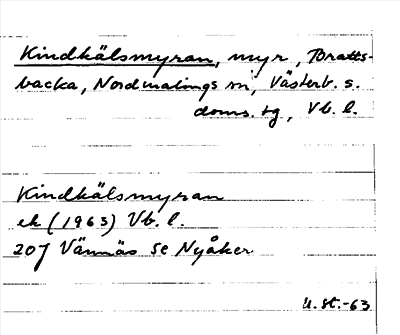 Kindkälsmyran, myr, Bratts-
backa, Nordmalings sn, Västerb. s.
doms. tg, Vb. l.
Kindkälsmyran
ek (1963) Vb. l.
20J Vännäs SE Nyåker
U.St.-63